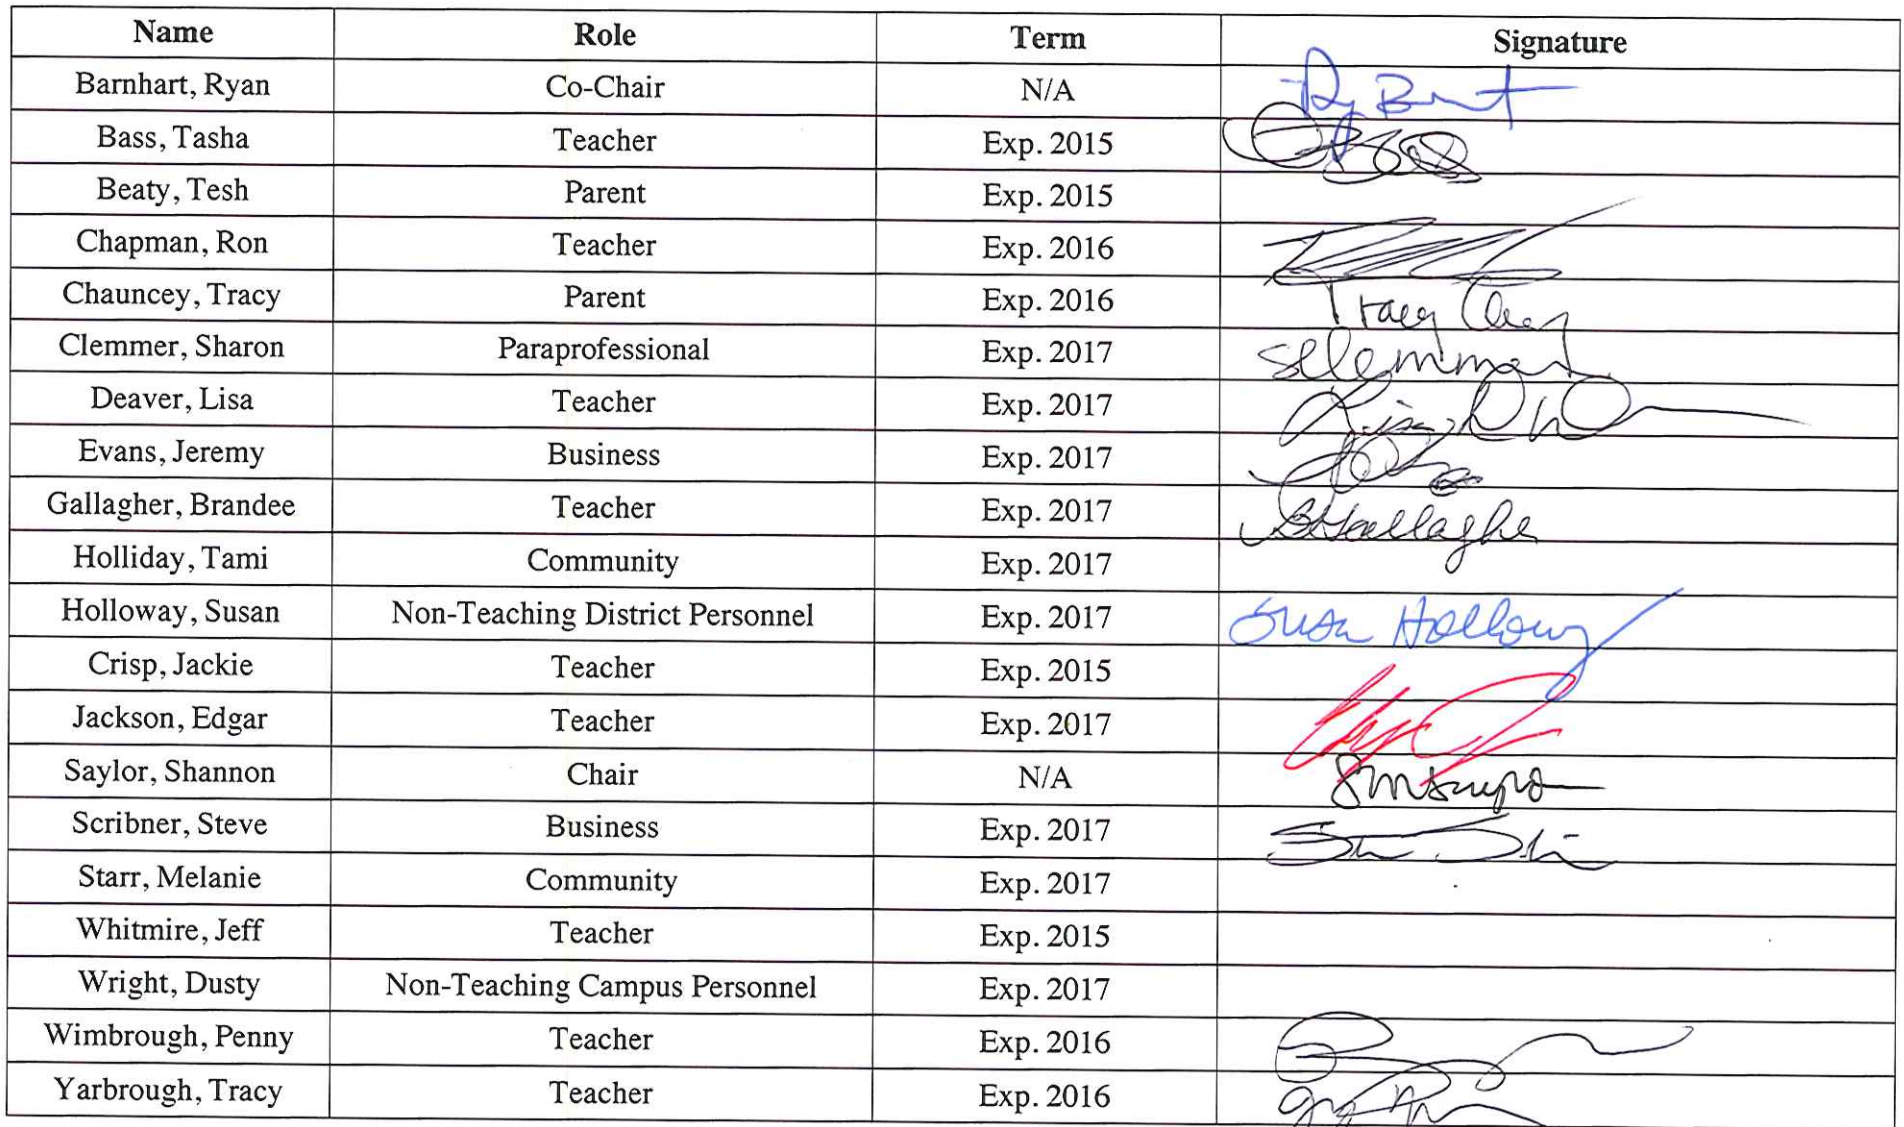 Name Role Term Signature
Barnhart, Ryan Co-Chair N/A
Bass, Tasha Teacher Exp. 2015
Beaty, Tesh Parent Exp. 2015
Chapman, Ron Teacher Exp. 2016
Chauncey, Tracy Parent Exp. 2016 Tracy
Clemmer, Sharon Paraprofessional Exp. 2017 SClemmer
Deaver, Lisa Teacher Exp. 2017 Lisa
Evans, Jeremy Business Exp. 2017
Gallagher, Brandee Teacher Exp. 2017
Holliday, Tami Community Exp. 2017
Holloway, Susan Non-Teaching District Personnel Exp. 2017 Susan Holloway
Crisp, Jackie Teacher Exp. 2015
Jackson, Edgar Teacher Exp. 2017
Saylor, Shannon Chair N/A
Scribner, Steve Business Exp. 2017
Starr, Melanie Community Exp. 2017
Whitmire, Jeff Teacher Exp. 2015
Wright, Dusty Non-Teaching Campus Personnel Exp. 2017
Wimbrough, Penny Teacher Exp. 2016
Yarbrough, Tracy Teacher Exp. 2016